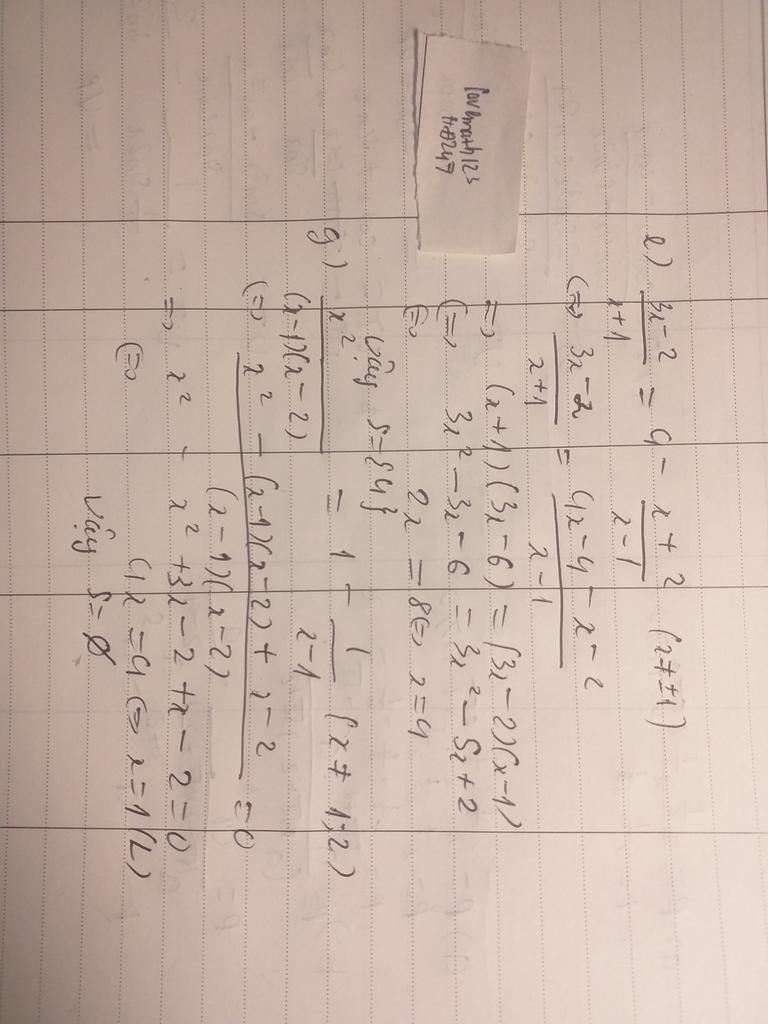 lovemath123
1k8247
e) (3x-2)/(x+1) = 4 - (x+2)/(x-1) (x≠±1)
(=) (3x-2)/(x+1) = (4x-4-x-2)/(x-1)
=) (x+1)(3x-6) = (3x-2)(x-1)
(=) 3x²-3x-6 = 3x²-5x+2
(=) 2x = 8 (=) x=4
Vậy S={4}
g) x²/((x-1)(x-2)) = 1 - 1/(x-1) (x≠1;2)
(=) (x²-(x-1)(x-2)+x-2)/((x-1)(x-2)) =0
=) x² - x²+3x-2+x-2=0
(=) 4x=4 (=) x=1(L)
Vậy S=∅